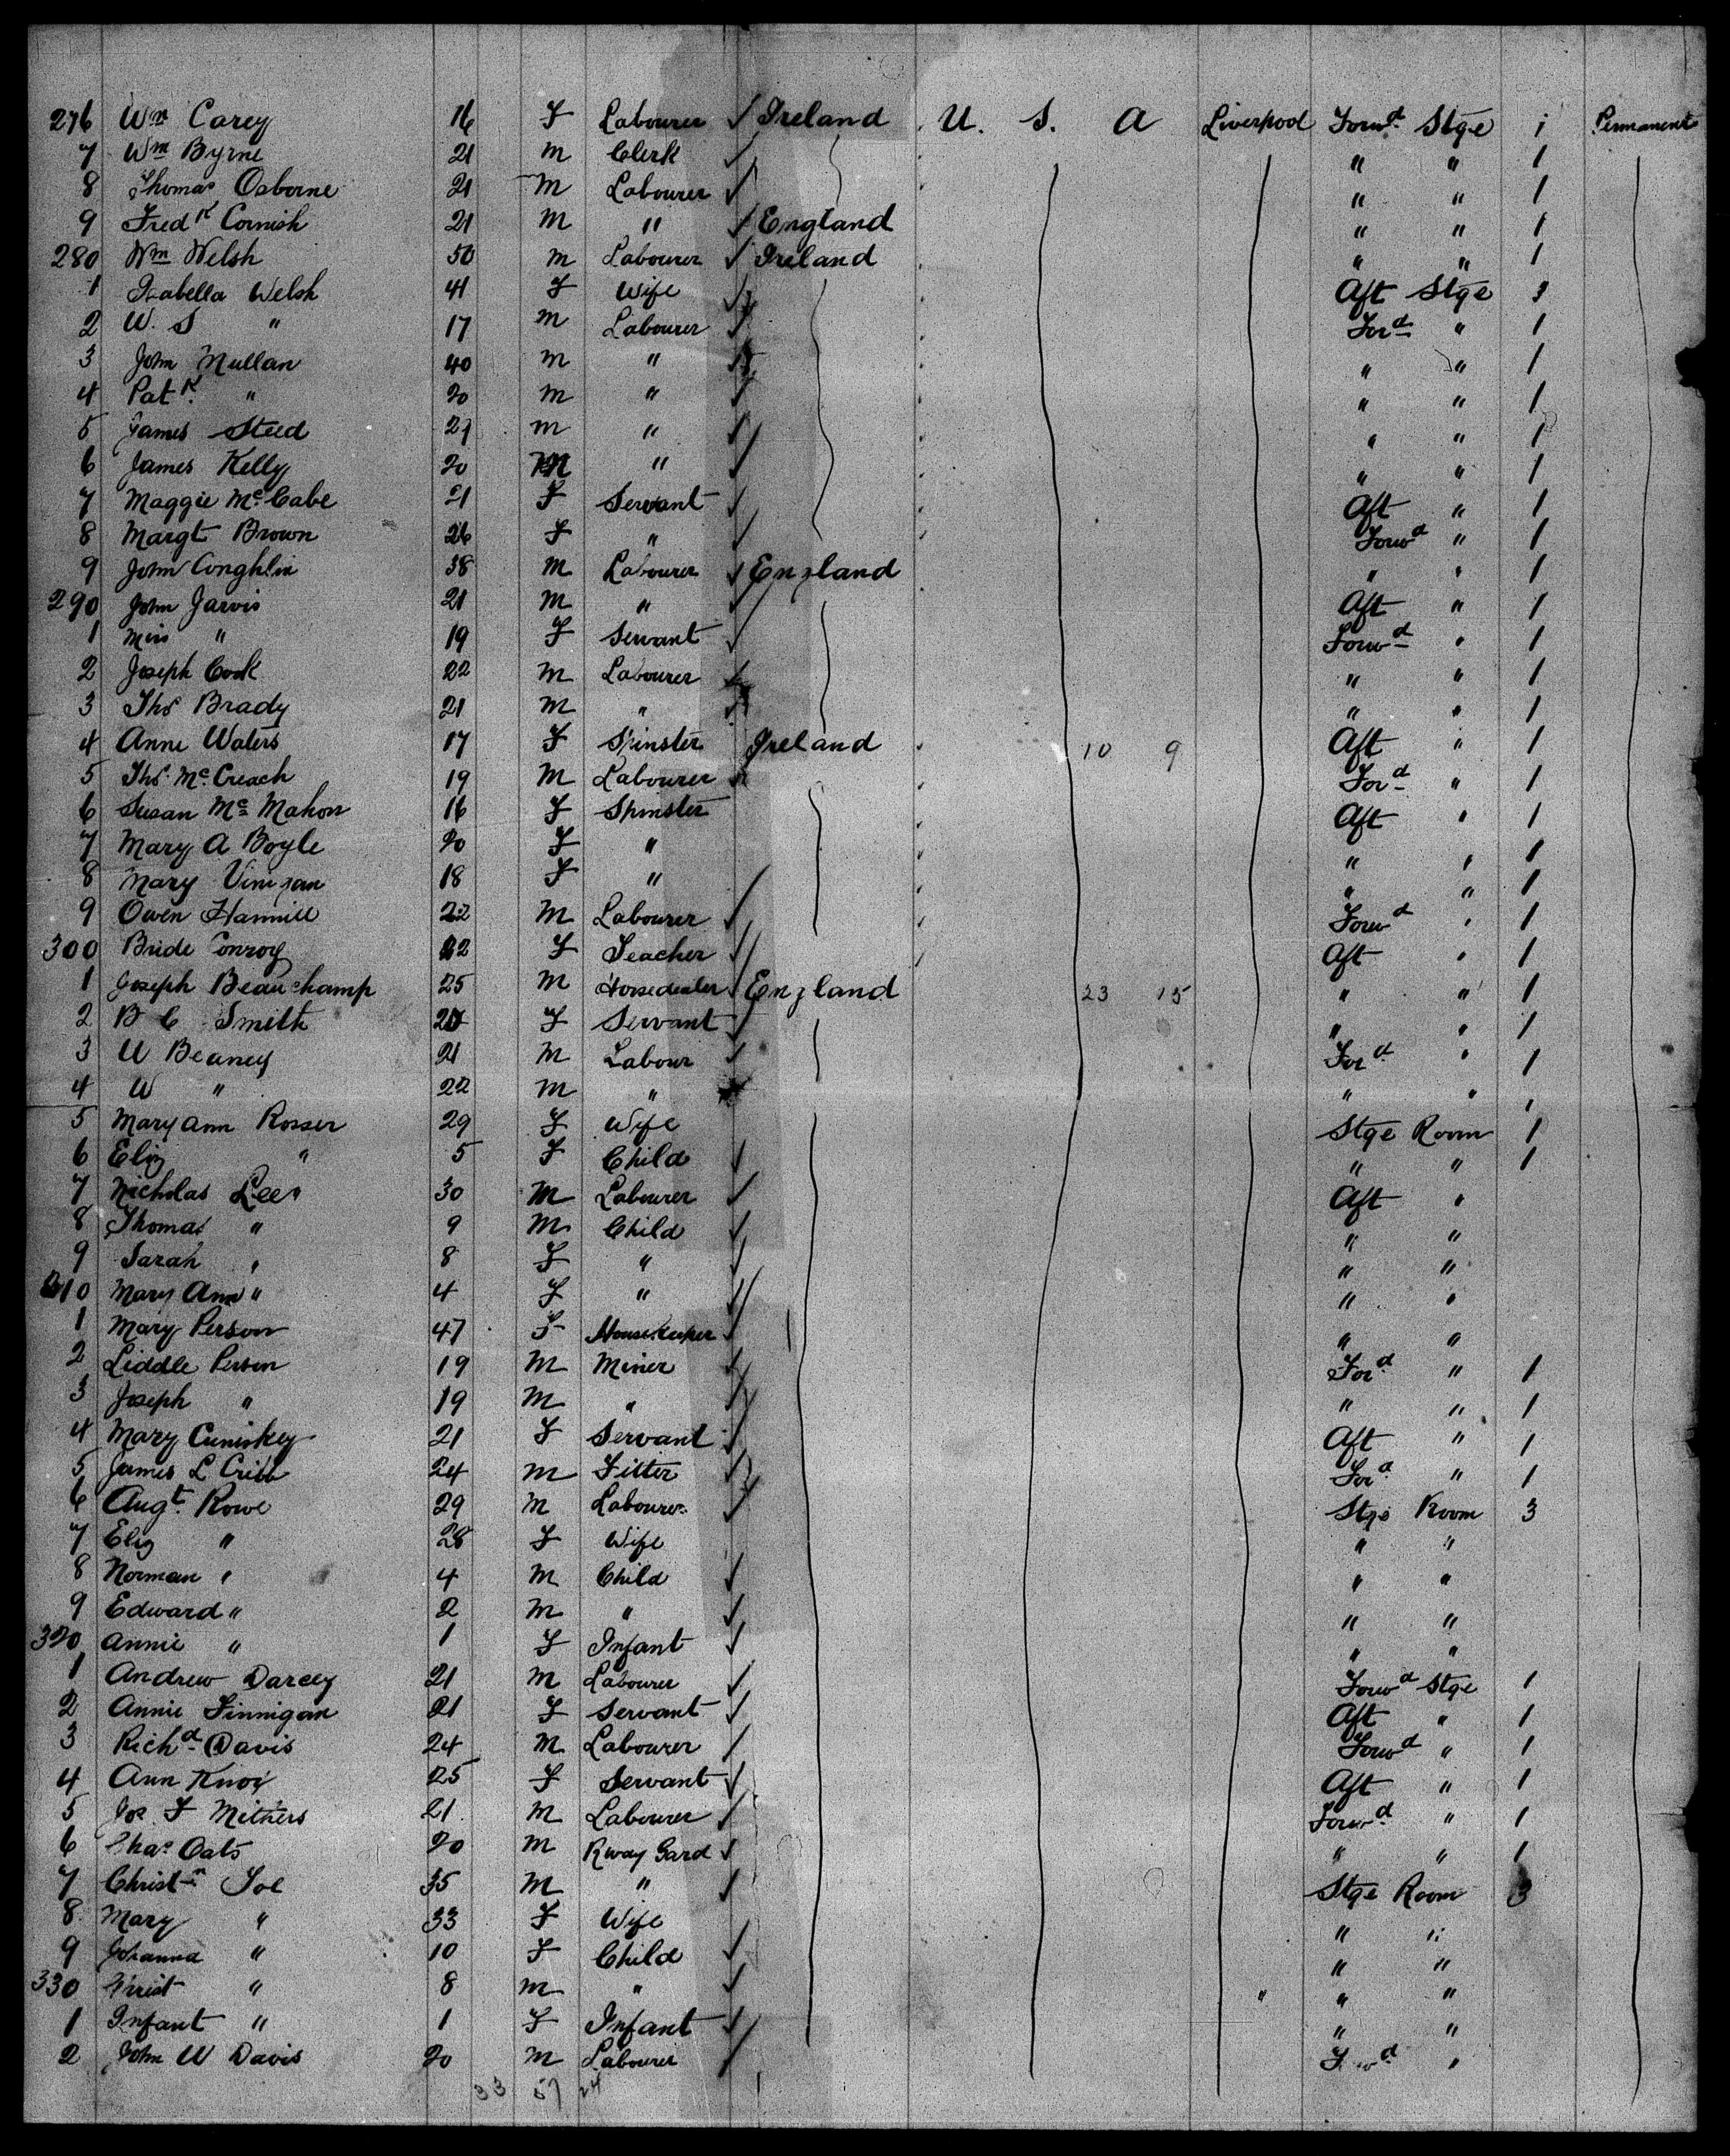 276 Wm Carey 16 F Labourer ✓ Ireland U. S. A Liverpool Forwd Stge 1 Permanent
7 Wm Byrne 21 m Clerk ✓ " " 1
8 Thomas Osborne 21 m Labourer ✓ " " 1
9 Fredk Cornish 21 m " ✓ England " " 1
280 Wm Welsh 50 m Labourer ✓ Ireland " " 1
1 Isabella Welsh 41 F Wife ✓ Aft Stge 3
2 W. S " 17 m Labourer ✓ Ford " 1
3 John Mullan 40 m " ✓ " " 1
4 Patk " 20 m " ✓ " " 1
5 James Steed 27 m " ✓ " " 1
6 James Kelly 20 M " ✓ " " 1
7 Maggie McCabe 21 F Servant ✓ Aft " 1
8 Margt Brown 26 F " ✓ Forwd " 1
9 John Conghlin 38 M Labourer ✓ England " " 1
290 John Jarvis 21 M " ✓ Aft " 1
1 Miss " 19 F Servant ✓ Forwd " 1
2 Joseph Cook 22 M Labourer ✓ " " 1
3 Thos Brady 21 M " ✓ " " 1
4 Anne Waters 17 F Spinster Ireland 10 9 Aft " 1
5 Thos McCreach 19 M Labourer ✓ Ford " 1
6 Susan Mc Mahon 16 F Spinster Aft " 1
7 Mary A Boyle 20 F " " " 1
8 Mary 18 F " " " 1
9 Owen 22 M Labourer ✓ Forwd " 1
300 Bride Conroy 22 F Teacher ✓ Aft " 1
1 Joseph Beauchamp 25 M Horsedealer ✓ England 23 15 " " 1
2 B C Smith 20 F Servant ✓ " " 1
3 U Beaney 21 M Labour ✓ Ford " 1
4 W " 22 M " " " 1
5 Mary Ann Rosser 29 F Wife Stge Room 1
6 Eliz " 5 F Child ✓ " " 1
7 Nicholas Lees 30 M Labourer ✓ Aft "
8 Thomas " 9 M Child ✓ " "
9 Sarah " 8 F " ✓ " "
310 Mary Ann " 4 F " ✓ " "
1 Mary Person 47 F Housekeeper ✓ " "
2 Liddle Person 19 M Miner ✓ Ford " 1
3 Joseph " 19 M " ✓ " " 1
4 Mary Cuniskey 21 F Servant ✓ Aft " 1
5 James L Cribb 24 m Fitter ✓ Ford " 1
6 Augt. Rowe 29 M Labourer ✓ Stge Room 3
7 Eliz " 28 F Wife " "
8 Norman " 4 M Child ✓ " "
9 Edward " 2 M " ✓ " "
320 Annie " 1 F Infant ✓ " "
1 Andrew Darcey 21 M Labourer ✓ Forwd Stge 1
2 Annie Finnigan 21 F Servant ✓ Aft " 1
3 Richd Davis 24 M Labourer ✓ Forwd " 1
4 Ann Knox 25 F Servant ✓ Aft " 1
5 Jos F Mithers 21 M Labourer ✓ Forwd " 1
6 Chas Oats 20 M Rway Gard ✓ " " 1
7 Christn Joe 35 M " ✓ Stge Room 3
8 Mary " 33 F Wife " "
9 Johanna " 10 F Child ✓ " "
330 Christ " 8 m " ✓ " " "
1 Infant " 1 F Infant ✓ " "
2 John W Davis 20 M Labourer ✓ "
33 57 24